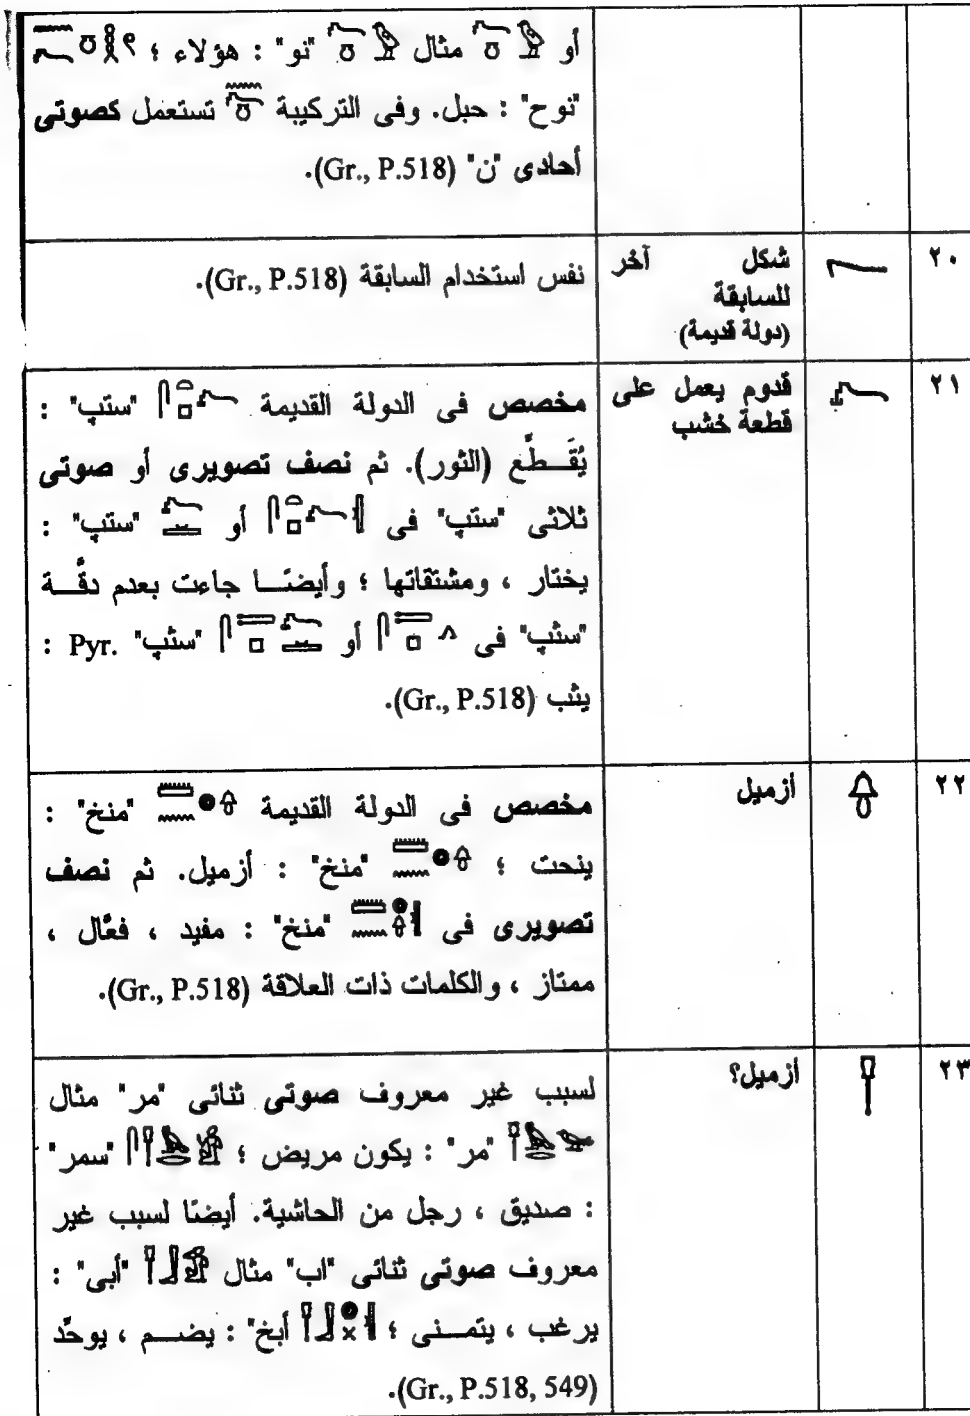 أو مثال "نو" : هؤلاء ؛
"نوح" : حبل. وفى التركيبة تستعمل كصوتى
أحادى "ن" (Gr., P.518).
٢٠
شكل آخر
للسابقة
(دولة قديمة)
نفس استخدام السابقة (Gr., P.518).
٢١
قدوم يعمل على
قطعة خشب
مخصص فى الدولة القديمة "ستپ" :
يُقَـطِّع (الثور). ثم نصف تصويرى أو صوتى
ثلاثى "ستپ" فى أو "ستپ" :
يختار ، ومشتقاتها ؛ وأيضًا جاءت بعدم دقَّة
"سثپ" فى أو "سثپ" Pyr. :
يثب (Gr., P.518).
٢٢
أزميل
مخصص فى الدولة القديمة "منخ" :
ينحت ؛ "منخ" : أزميل. ثم نصف
تصويرى فى "منخ" : مفيد ، فعَّال ،
ممتاز ، والكلمات ذات العلاقة (Gr., P.518).
٢٣
أزميل؟
لسبب غير معروف صوتى ثنائى "مر" مثال
"مر" : يكون مريض ؛ "سمر"
: صديق ، رجل من الحاشية. أيضًا لسبب غير
معروف صوتى ثنائى "اب" مثال "أبى" :
يرغب ، يتمنى ؛ أبخ" : يضم ، يوحِّد
(Gr., P.518, 549).